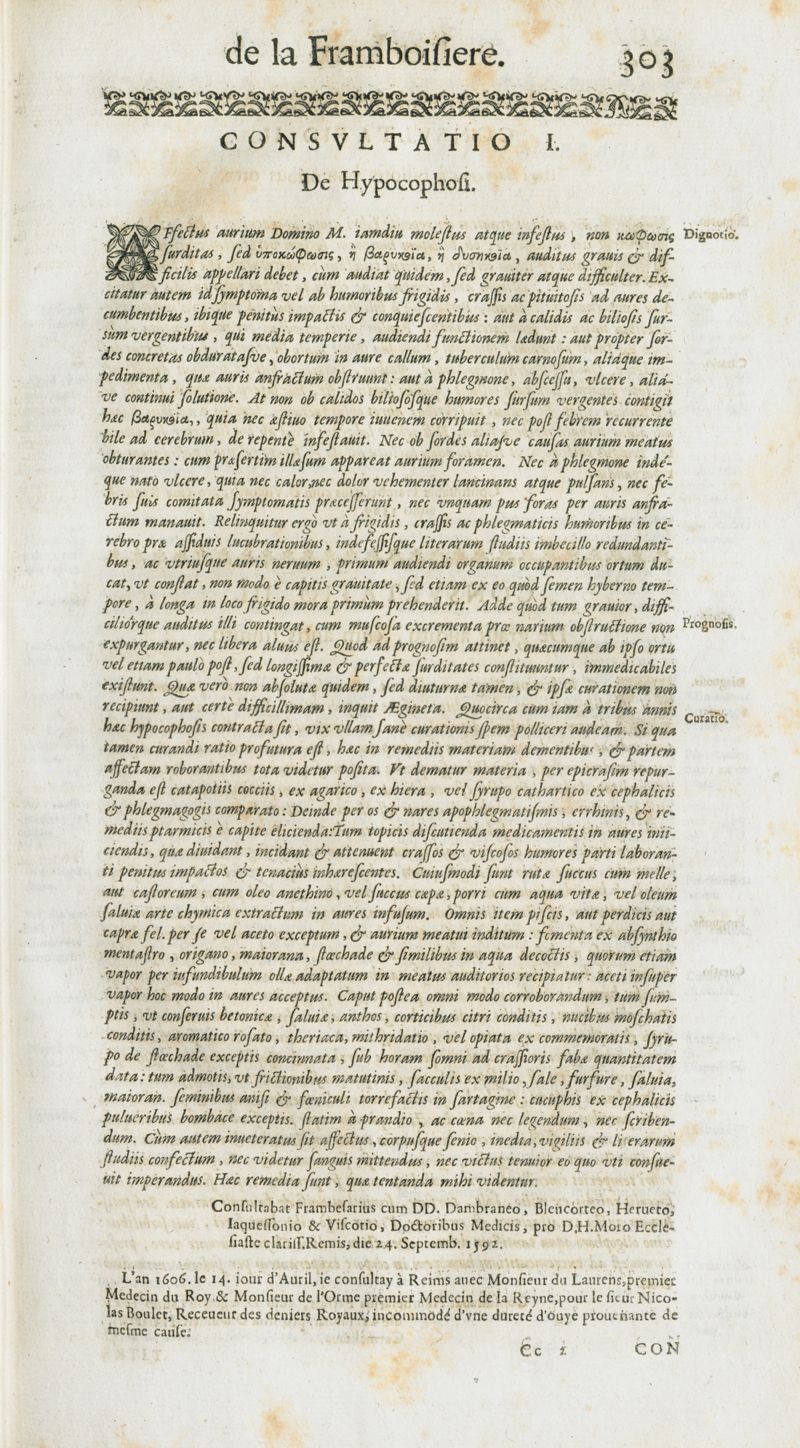 de la Framboiſiere. 303
CONSVLTATIO I.
De Hypocophoſi.
AFfectus aurium Domino M. iamdiu moleſtus atque infeſtus, non κώφωσις Dignotio.
ſurditas, ſed ὑποκώφωσις, ἢ βαρυκοΐα, ἢ δυσηκοΐα, auditus grauis & dif-
ficilis appellari debet, cùm audiat quidem, ſed grauiter atque difficulter. Ex-
citatur autem id ſymptoma vel ab humoribus frigidis, craſſis ac pituitoſis ad aures de-
cumbentibus, ibique penitùs impactis & conquieſcentibus: aut à calidis ac bilioſis ſur-
sùm vergentibus, qui media temperie, audiendi functionem lædunt: aut propter ſor-
des concretas obduratáſve, obortum in aure callum, tuberculum carnoſum, aliáque im-
pedimenta, quæ auris anfractum obſtruunt: aut à phlegmone, abſceſſu, vlcere, aliá-
ve continui ſolutione. At non ob calidos bilioſoſque humores ſurſum vergentes contigit
hæc βαρυκοΐα, quia nec æſtiuo tempore iuuenem corripuit, nec poſt febrem recurrente
bile ad cerebrum, de repentè infeſtauit. Nec ob ſordes aliaſve cauſas aurium meatus
obturantes: cum præſertim illæſum appareat aurium foramen. Nec à phlegmone indé-
que nato vlcere, quia nec calor, nec dolor vehementer lancinans atque pulſans, nec fe-
bris ſuis comitata ſymptomatis præceſſerunt, nec vnquam pus foras per auris anfra-
ctum manauit. Relinquitur ergò vt à frigidis, craſſis ac phlegmaticis humoribus in ce-
rebro præ aſſiduis lucubrationibus, indefeſſiſque literarum ſtudiis imbecillo redundanti-
bus, ac vtriuſque auris neruum, primum audiendi organum occupantibus ortum du-
cat, vt conſtat, non modo è capitis grauitate, ſed etiam ex eo quòd ſemen hyberno tem-
pore, à longa in loco frigido mora primùm prehenderit. Adde quòd tum grauior, diffi-
ciliórque auditus illi contingat, cum muſcoſa excrementa præ narium obſtructione non Prognoſis.
expurgantur, nec libera aluus eſt. Quod ad prognoſim attinet, quæcumque ab ipſo ortu
vel etiam paulò poſt, ſed longiſſimæ & perfectæ ſurditates conſtituuntur, immedicabiles
exiſtunt. Quæ verò non abſolutæ quidem, ſed diuturnæ tamen, & ipſæ curationem non
recipiunt, aut certè difficillimam, inquit Ægineta. Quocirca cùm iam à tribus annis Curatio.
hæc hypocophoſis contracta ſit, vix vllam ſanè curationis ſpem polliceri audeam. Si qua
tamen curandi ratio profutura eſt, hæc in remediis materiam dementibus, & partem
affectam roborantibus tota videtur poſita. Vt dematur materia, per epicraſim repur-
ganda eſt catapotiis cocciis, ex agarico, ex hiera, vel ſyrupo cathartico ex cephalicis
& phlegmagogis comparato: Deinde per os & nares apophlegmatiſmis, errhinis, & re-
mediis ptarmicis è capite elicienda: Tum topicis diſcutienda medicamentis in aures inii-
ciendis, quæ diuidant, incidant & attenuent craſſos & viſcoſos humores parti laboran-
ti penitus impactos & tenacius inhæreſcentes. Cuiuſmodi ſunt rutæ ſuccus cum melle,
aut caſtoreum, cum oleo anethino, vel ſuccus cæpæ, porri cùm aqua vitæ, vel oleum
ſaluiæ arte chymica extractum in aures infuſum. Omnis item piſcis, aut perdicis aut
capræ fel. per ſe vel aceto exceptum, & aurium meatui inditum: fomenta ex abſynthio
mentaſtro, origano, maiorana, ſtœchade & ſimilibus in aqua decoctis, quorum etiam
vapor per iufundibulum ollæ adaptatum in meatus auditorios recipiatur: aceti inſuper
vapor hoc modo in aures acceptus. Caput poſtea omni modo corroborandum, tum ſum-
ptis, vt conſeruis betonicæ, ſaluiæ, anthos, corticibus citri conditis, nucibus moſchatis
conditis, aromatico roſato, theriaca, mithridatio, vel opiata ex commemoratis, ſyru-
po de ſtœchade exceptis concinnata, ſub horam ſomni ad craſſioris fabæ quantitatem
data: tum admotis, vt frictionibus matutinis, ſacculis ex milio, ſale, furfure, ſaluia,
maioran. ſeminibus aniſi & fœniculi torrefactis in ſartagine: cucuphis ex cephalicis
pulueribus bombace exceptis. ſtatim à prandio, ac cœna nec legendum, nec ſcriben-
dum. Cùm autem inueteratus ſit affectus, corpuſque ſenio, inedia, vigiliis & literarum
ſtudiis confectum, nec videtur ſanguis mittendus, nec victus tenuior eo quo vti conſue-
uit imperandus. Hæc remedia ſunt, quæ tentanda mihi videntur.
Conſultabat Frambeſarius cum DD. Dambraneo, Blencorteo, Herueto,
Iaqueſſonio & Viſcotio, Doctoribus Medicis, pro D.H.Moro Eccle-
ſiaſte clariſſ. Remis, die 24. Septemb. 1592.
L'an 1606. le 14. iour d'Auril, ie conſultay à Reims auec Monſieur du Laurens, premier
Medecin du Roy & Monſieur de l'Orme premier Medecin de la Reyne, pour le ſieur Nico-
las Boulet, Receueur des deniers Royaux, incommodé d'vne dureté d'ouye prouenante de
meſme cauſe.
Cc 2 CON